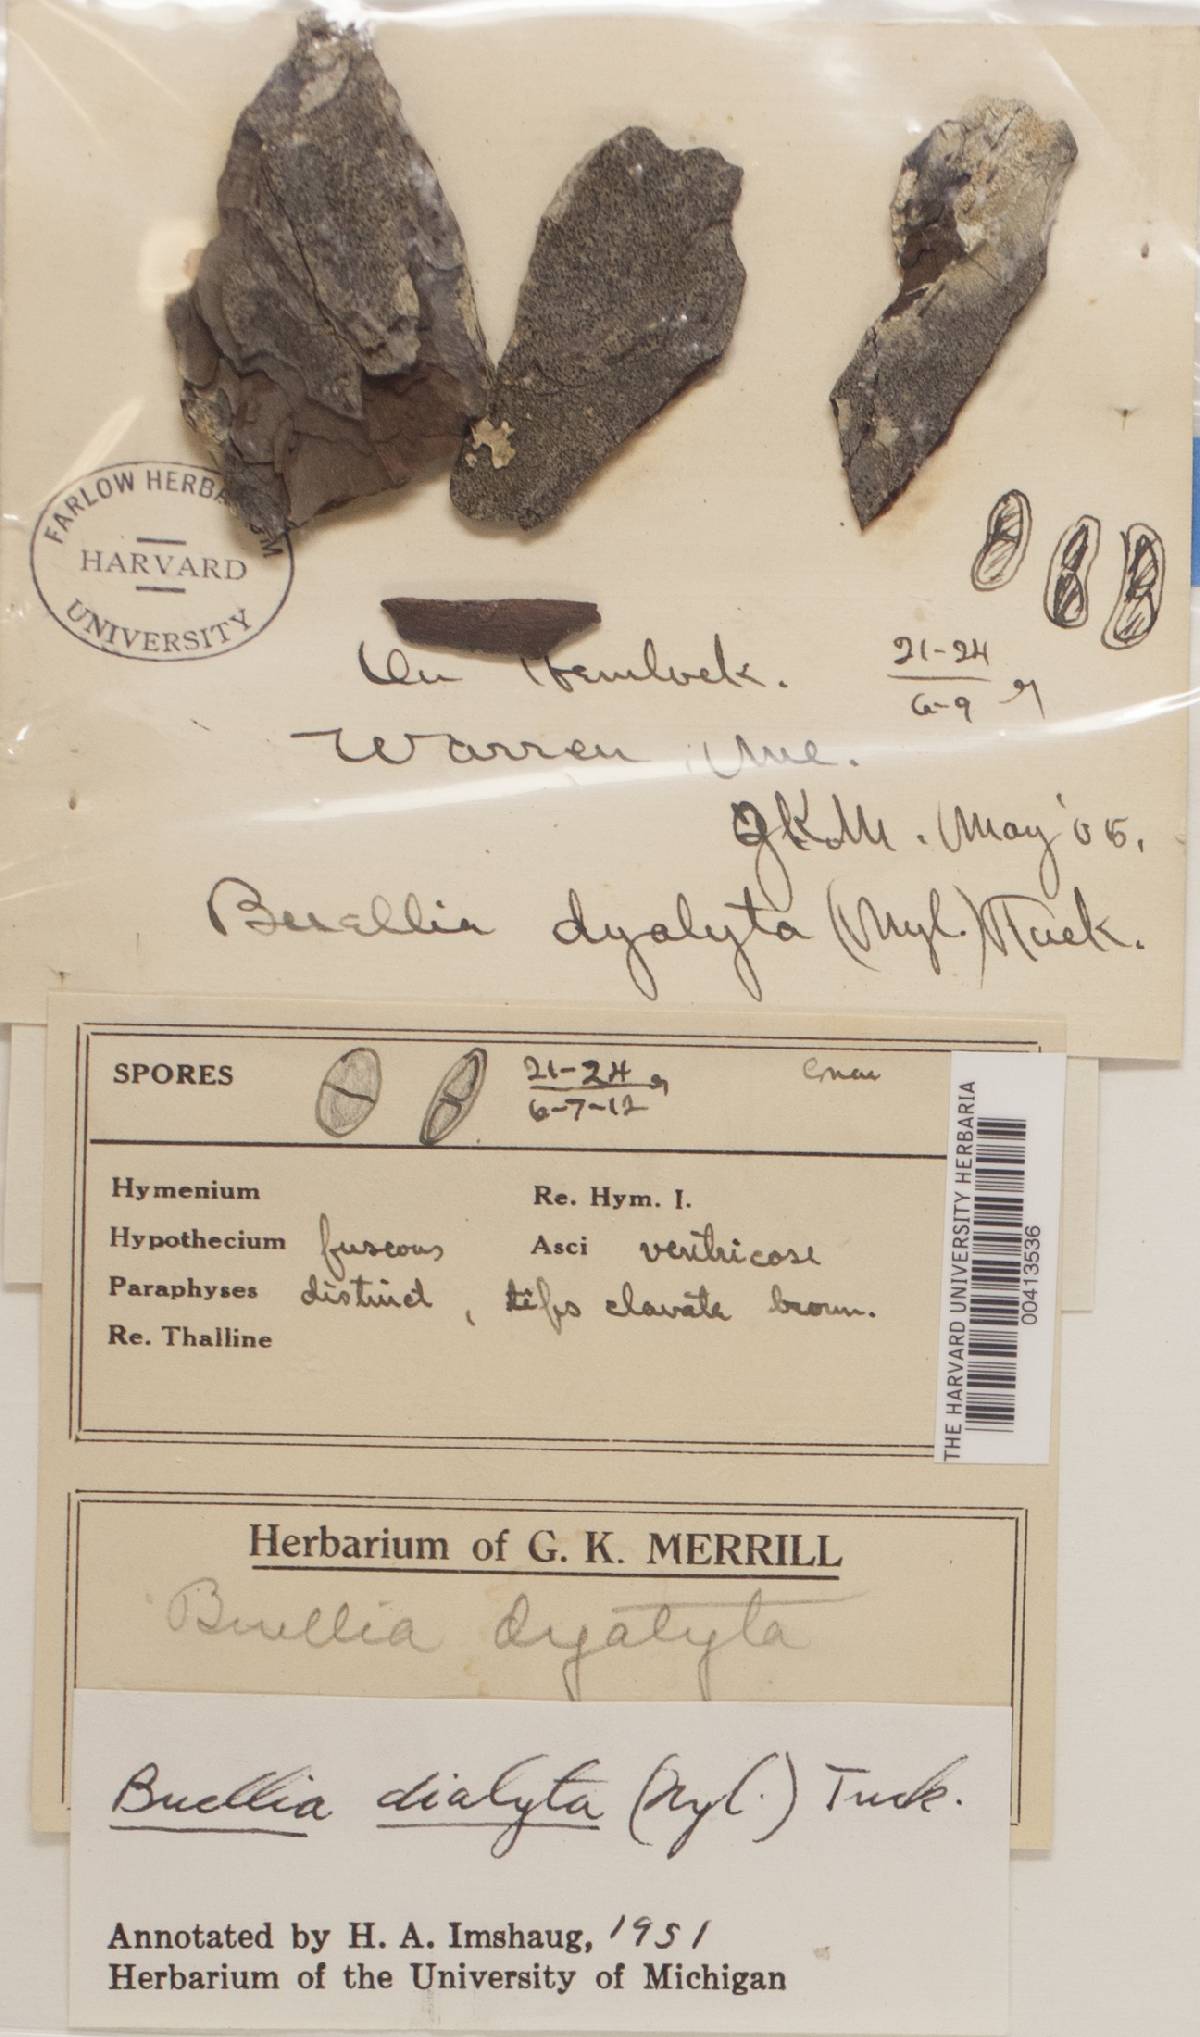 FARLOW HERBARIUM
HARVARD
UNIVERSITY
On Hemlock.
21-24
6-9
Warren Me.
G.K.M. May '05.
Buellia dyalyta (Nyl.) Tuck.
SPORES
21-24
6-7-12
Hymenium
Re. Hym. I.
Hypothecium fuscous
Asci ventricose
Paraphyses distinct, tips clavate brown.
Re. Thalline
THE HARVARD UNIVERSITY HERBARIA
00413536
Herbarium of G. K. MERRILL
Buellia dyalyta
Buellia dialyta (Nyl.) Tuck.
Annotated by H. A. Imshaug, 1951
Herbarium of the University of Michigan